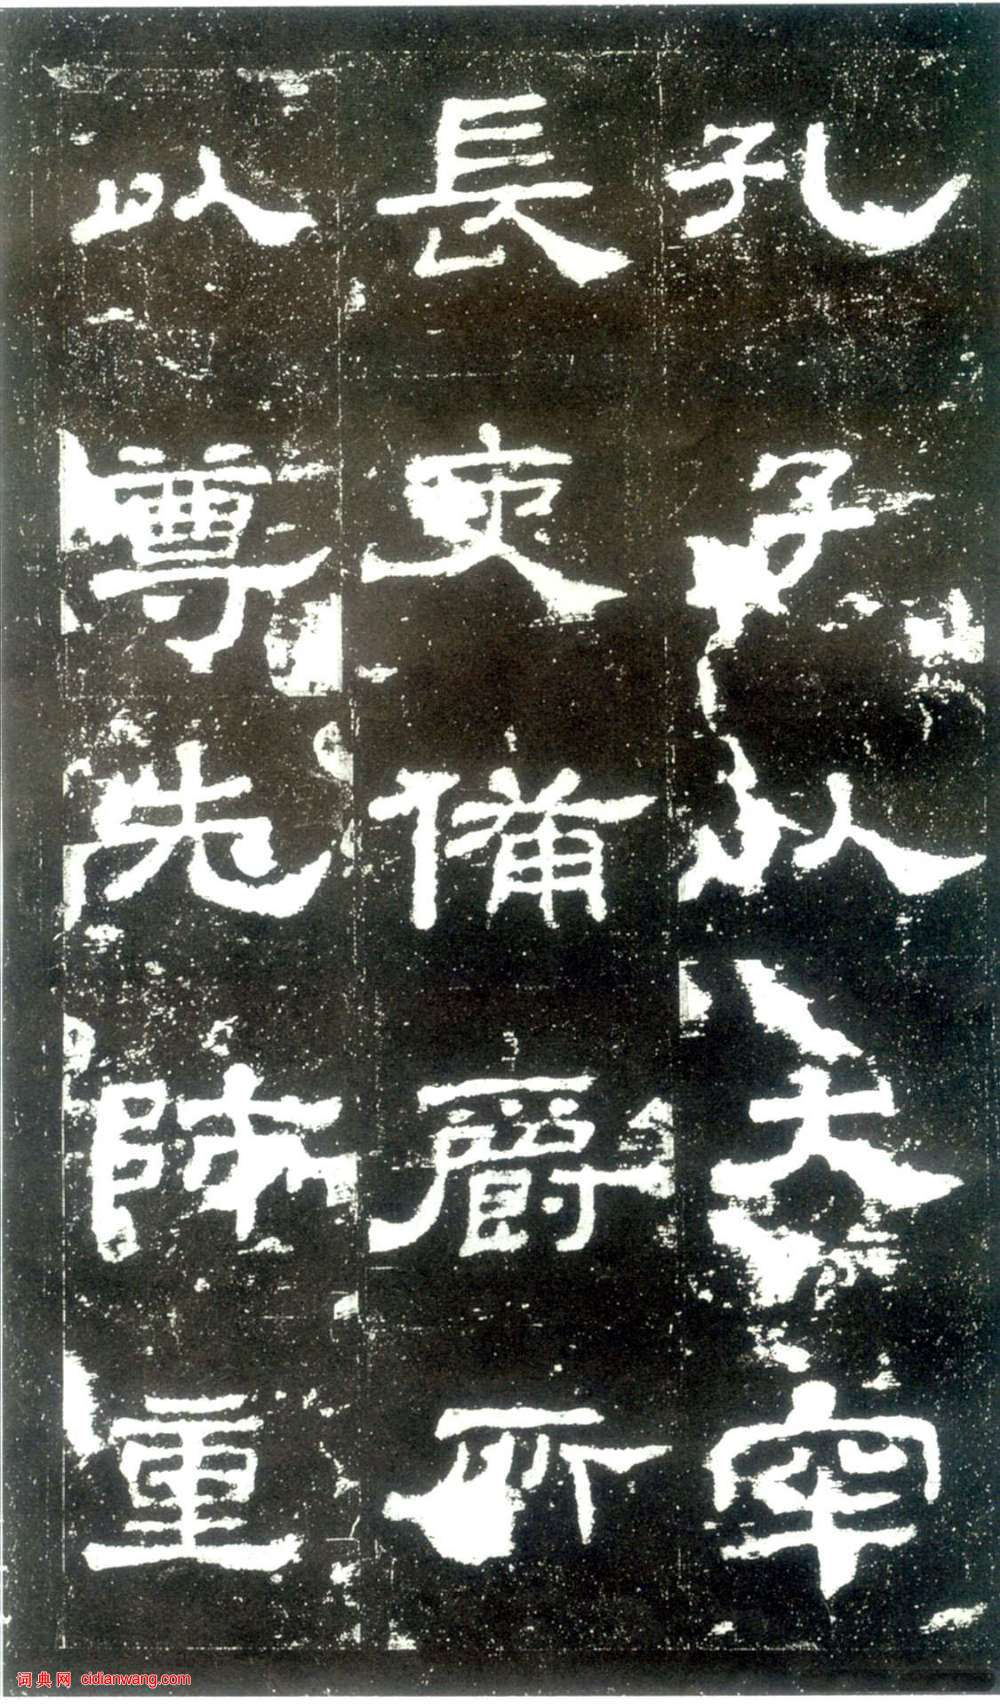 孔子以大牢
長吏備爵所
以尊先師重
词典网 cidianwang.com